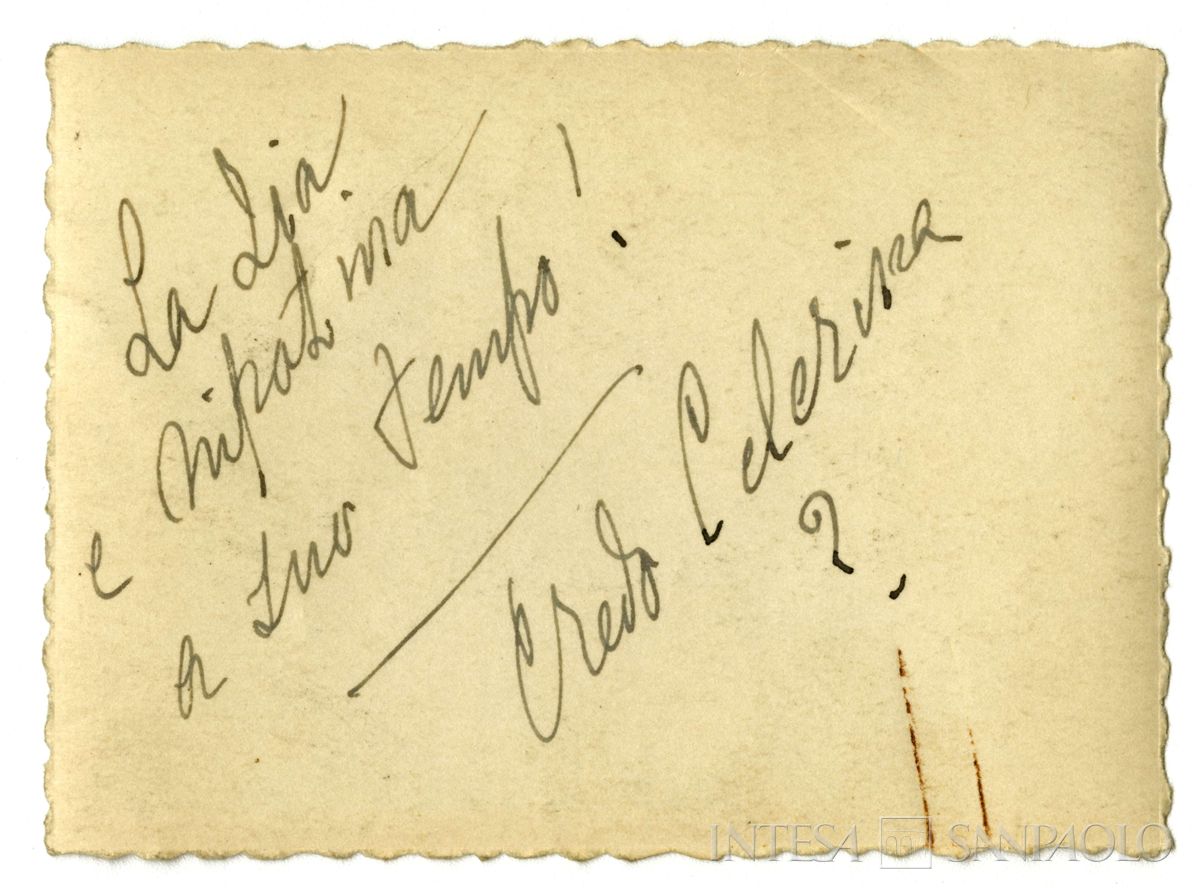 La Zia
e nipotina
a suo tempo!
Credo Celerina
?
INTESA SANPAOLO